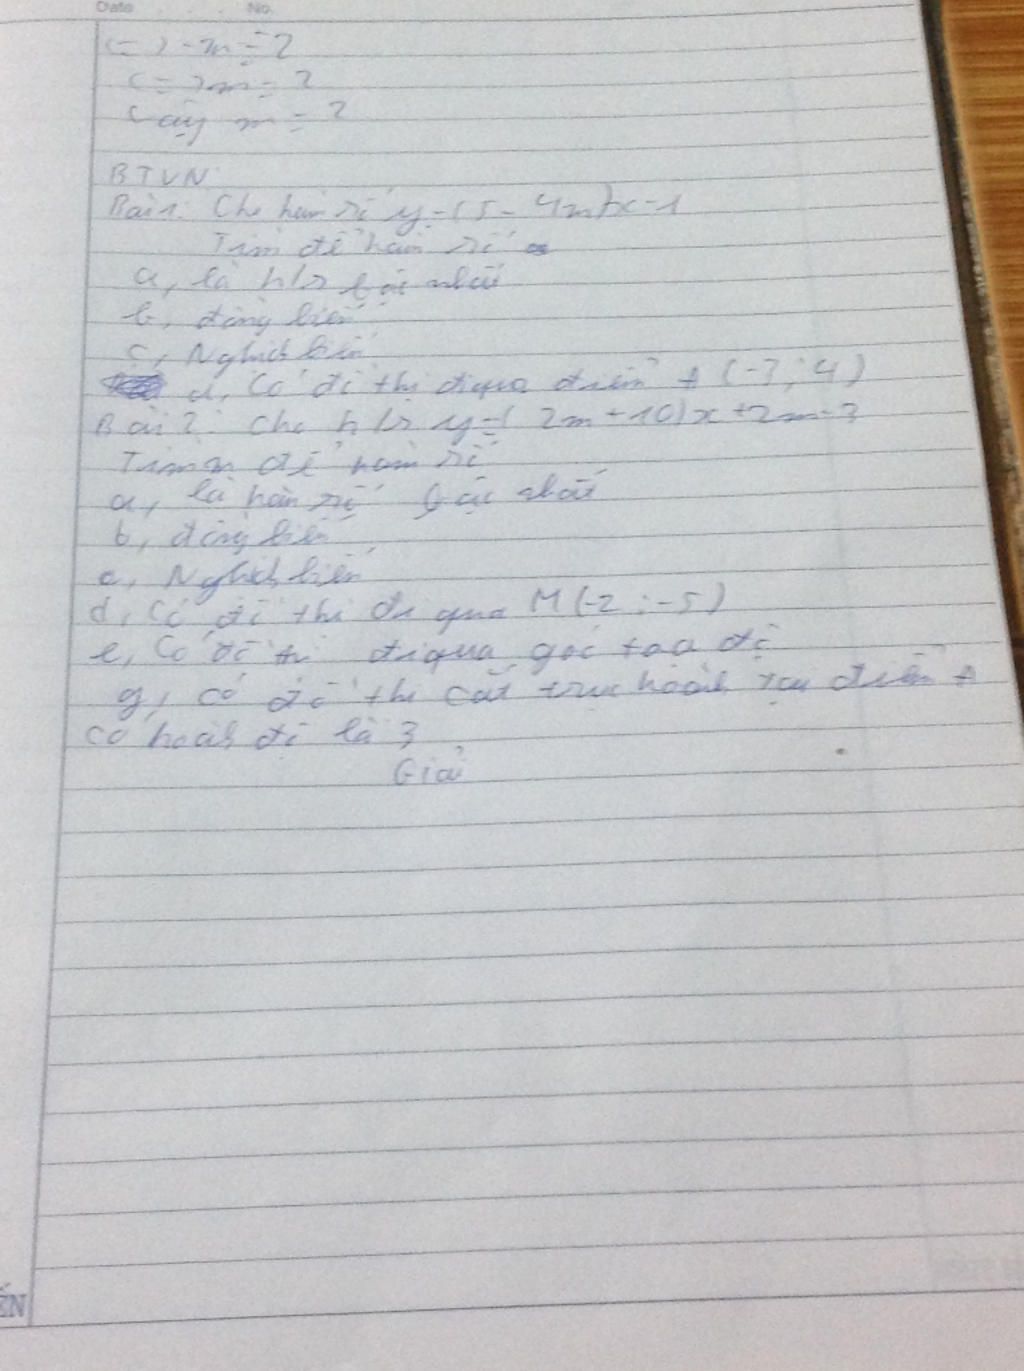 Date No.
(=) -m = 2
(=) m = 2
Vậy m = 2
BTVN
Bài 1: Cho hàm số y = (5 - 4m)x - 1
Tìm để hàm số
a, là h/s bậc nhất
b, đồng biến
c, Nghịch biến
d, Có đồ thị đi qua điểm A (-3; 4)
Bài 2: Cho h/s y = ( 2m + 10)x + 2m - 3
Tìm m để hàm số
a, là hàm số bậc nhất
b, đồng biến
c, Nghịch biến
d, Có đồ thị đi qua M (-2 ; -5)
e, Có đồ thị đi qua gốc toạ độ
g, có đồ thị cắt trục hoành tại điểm A
có hoành độ là 3
Giải
ẾN